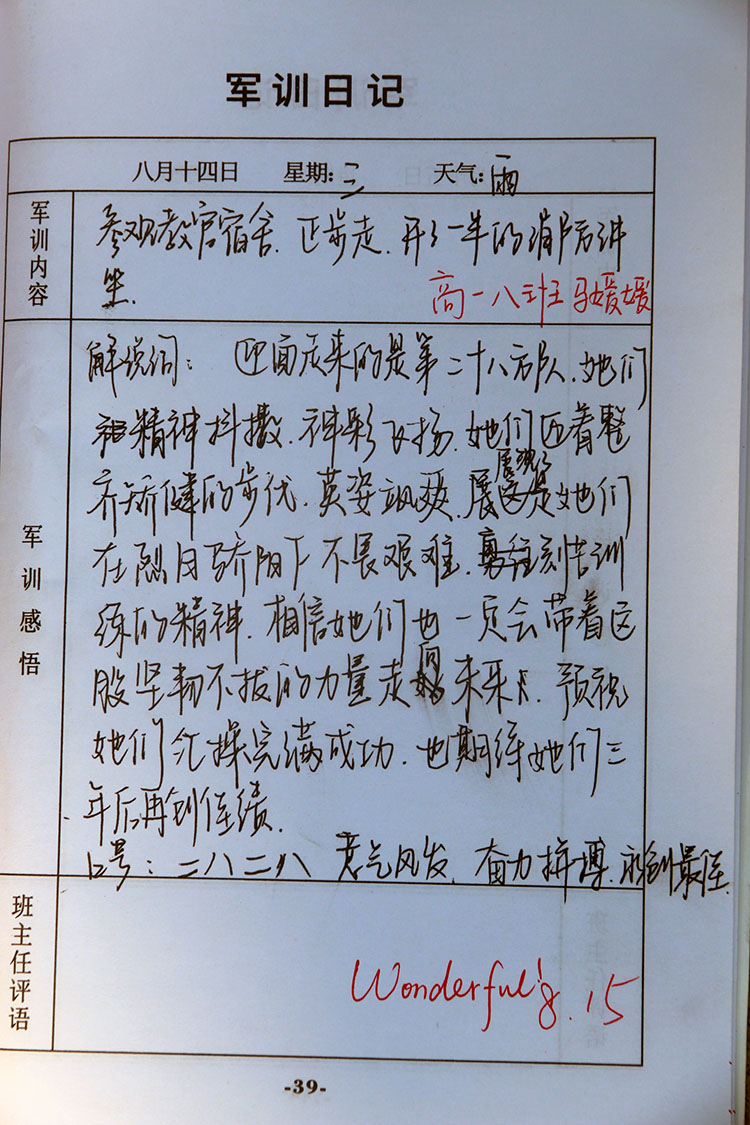 军训日记
八月十四日 星期:三 天气:雨
军训内容
参观教官宿舍.正步走.开了一半的消防讲
坐.
高一八班 马媛媛
军训感悟
解说词: 迎面走来的是第二十八方队.她们
精神抖擞.神彩飞扬.她们迈着整
齐矫健的步伐.英姿飒爽.展现了她们
在烈日骄阳下不畏艰难.刻苦训
练的精神.相信她们也一定会带着这
股坚韧不拔的力量走向未来.预祝
她们汇操完满成功.也期待她们三
年后再创佳绩.
口号:二八二八 意气风发.奋力拼搏.永创最佳.
班主任评语
Wonderful! 8.15
-39-